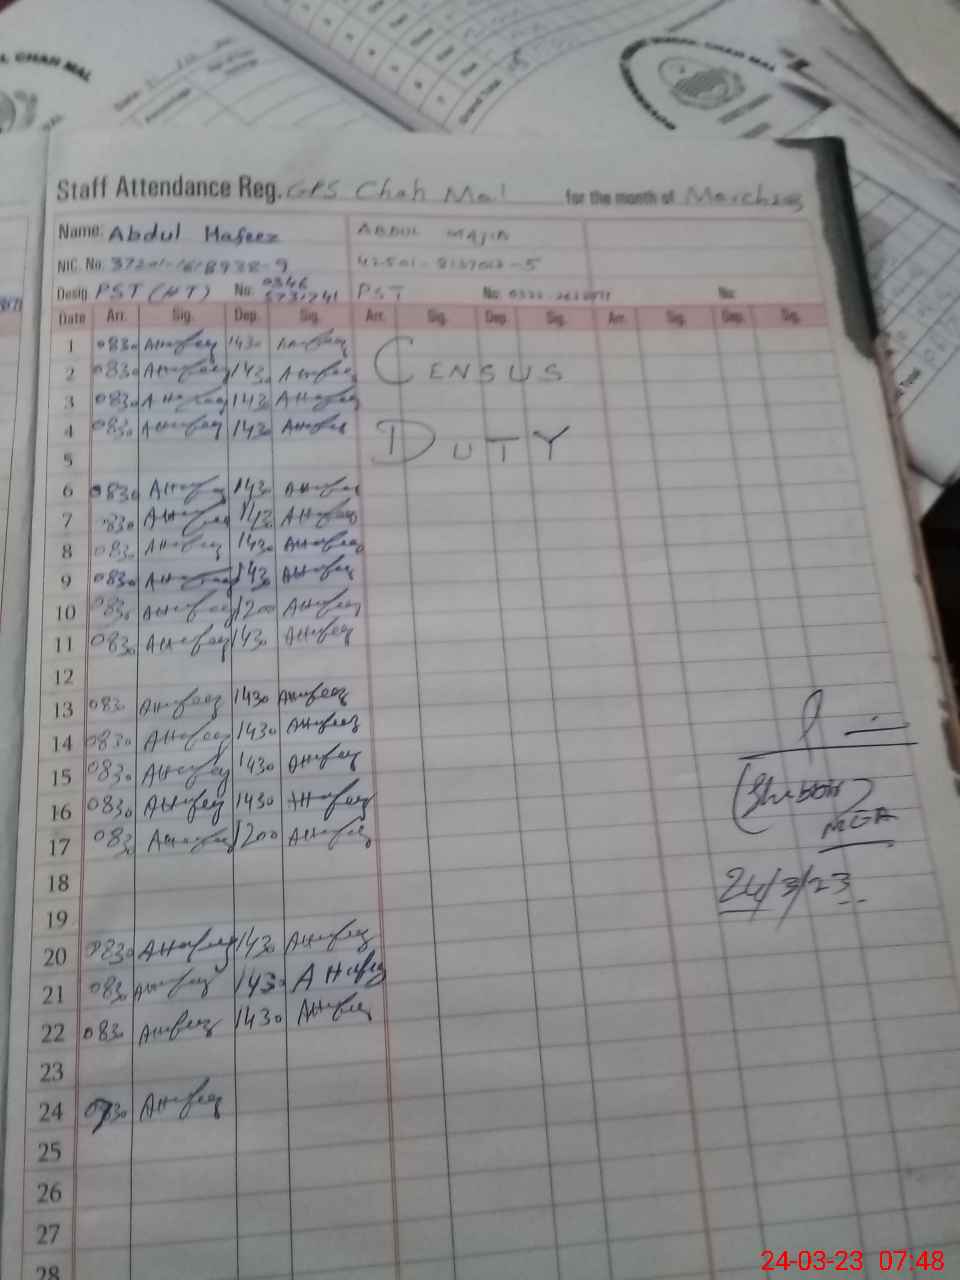 Staff Attendance Reg. GPS Chah Mal for the month of March 2023
Name: Abdul Hafeez ABDUL MAJID
NIC. No.
Desig. PST (HT) No: 0346 PST No: No:
5731741
Date Arr. Sig. Dep. Sig. Arr. Sig. Dep. Sig. Arr. Sig. Dep. Sig.
1 0830 AHafeez 1430 AHafeez
2 0830 AHafeez 1430 AHafeez CENSUS
3 0830 AHafeez 1430 AHafeez
4 0830 AHafeez 1430 AHafeez DUTY
5
6 0830 AHafeez 1430 AHafeez
7 0830 AHafeez AHafeez
8 0830 AHafeez 1430 AHafeez
9 0830 AHafeez 1430 AHafeez
10 0830 AHafeez 1200 AHafeez
11 0830 AHafeez 1430 AHafeez
12
13 0830 AHafeez 1430 AHafeez
14 0830 AHafeez 1430 AHafeez
15 0830 AHafeez 1430 AHafeez
16 0830 AHafeez 1430 AHafeez
17 0830 AHafeez 1200 AHafeez
18
19
20 0830 AHafeez 1430 AHafeez
21 0830 AHafeez 1430 AHafeez
22 0830 AHafeez 1430 AHafeez
23
24 AHafeez
25
26
27
28
MEA
24/3/23
24-03-23 07:48
CHAH MAL
CHAH MAL